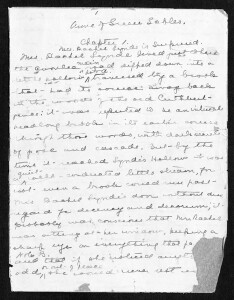 Anne of Green Gables.
Chapter 1.
Mrs. Rachel Lynde is Surprised.
Mrs. Rachel Lynde lived just where
the Avonlea main road dipped down into a
little hollow traversed by a brook
that had its source away back
in the woods of the old Cuthbert
place; it was reputed to be an intricate
headlong brook in its earlier course
through those woods, with dark secrets
of pool and cascade; but by the
time it reached Lynde's Hollow it was
a quiet well-conducted little stream, for
not even a brook could run past
Mrs. Rachel Lynde's door without due
regard for decency and decorum; it
probably was conscious that Mrs. Rachel
was sitting at her window, keeping a
sharp eye on everything that pa
and that if she noticed anythi
odd she would never rest un